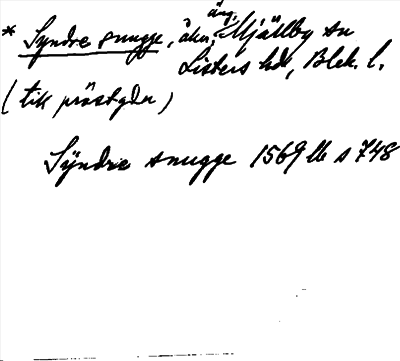 * Syndre snugge, åker, äng, Mjällby sn
Listers hd, Blek. l.
(till prästgdn)
Sÿndre snugge 1569 lb s 748